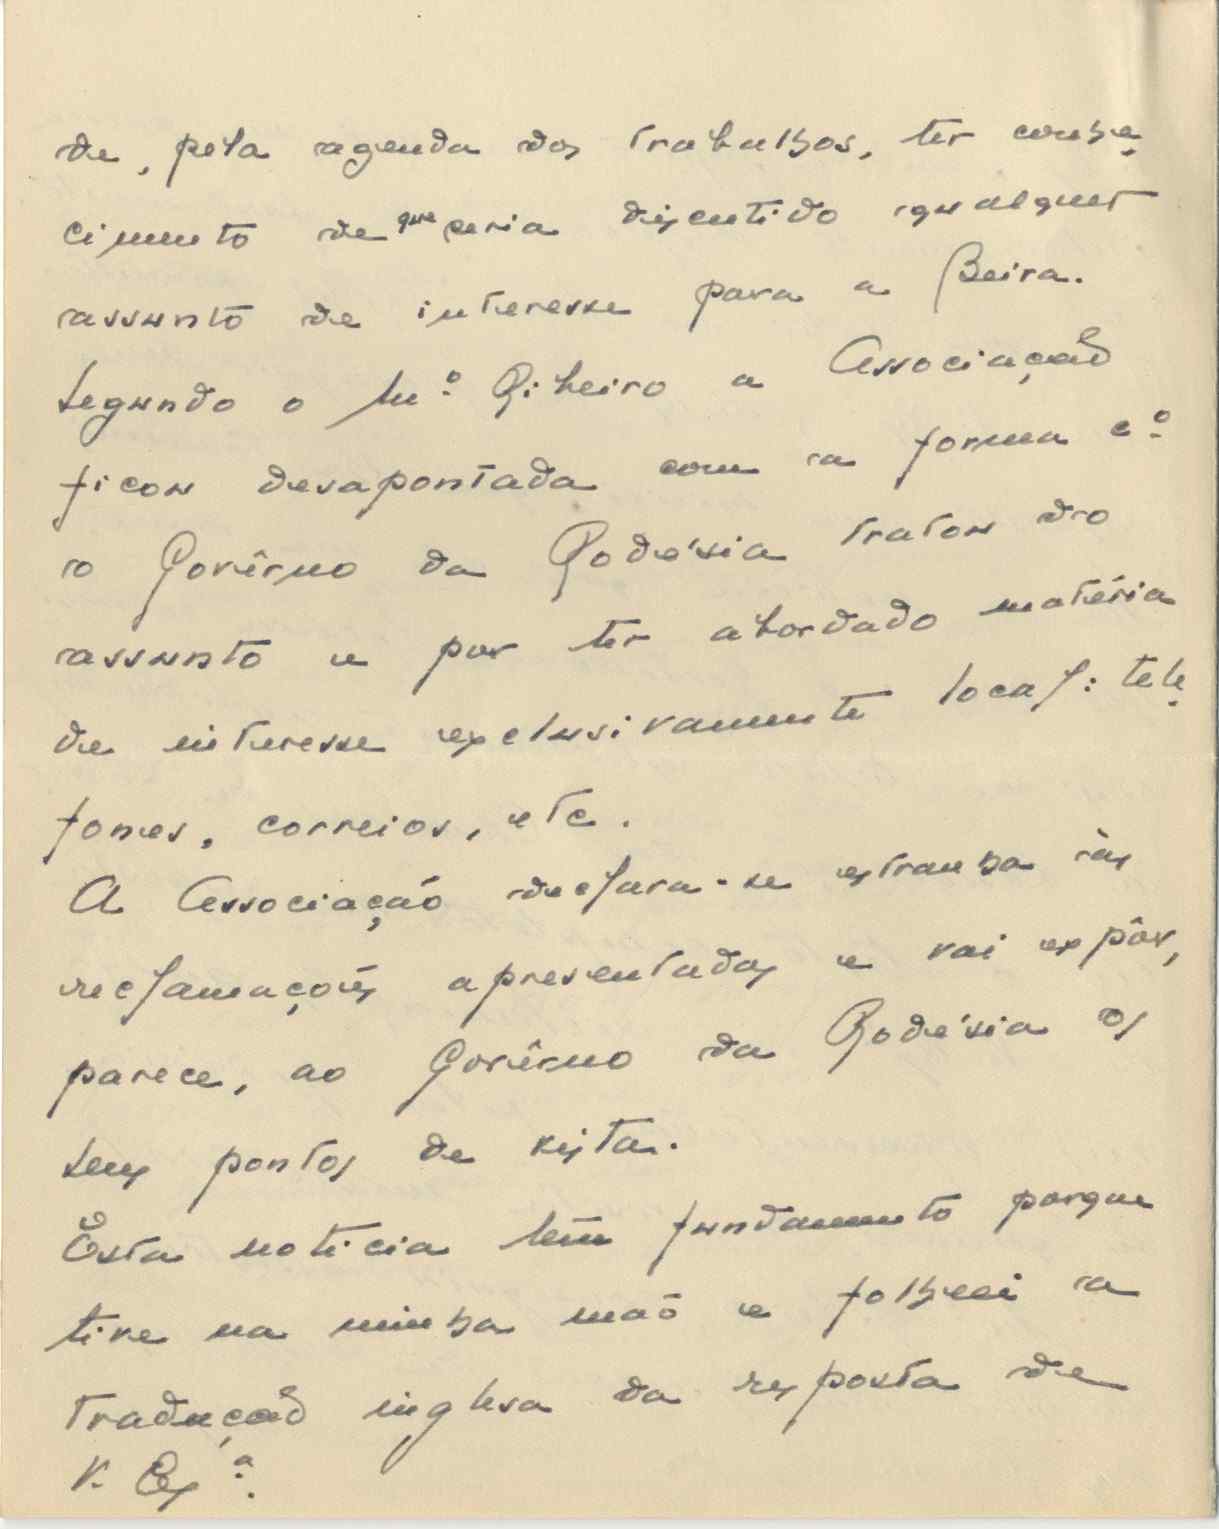 de, pela agenda dos trabalhos, ter conhe-
cimento de que seria discutido qualquer
assunto de interesse para a Beira.
Segundo o Mº Ribeiro a Associação
ficou desapontada com a forma cº
o Govêrno da Rodésia tratou do
assunto e por ter abordado matéria
de interesse exclusivamente local: tele-
fones, correios, etc.
A Associação declara-se extranha às
reclamações apresentadas e vai expôr,
parece, ao Govêrno da Rodésia os
seus pontos de vista.
Esta noticia tem fundamento porque
tive na minha mão e folheei a
tradução inglesa da resposta de
V. Exª.